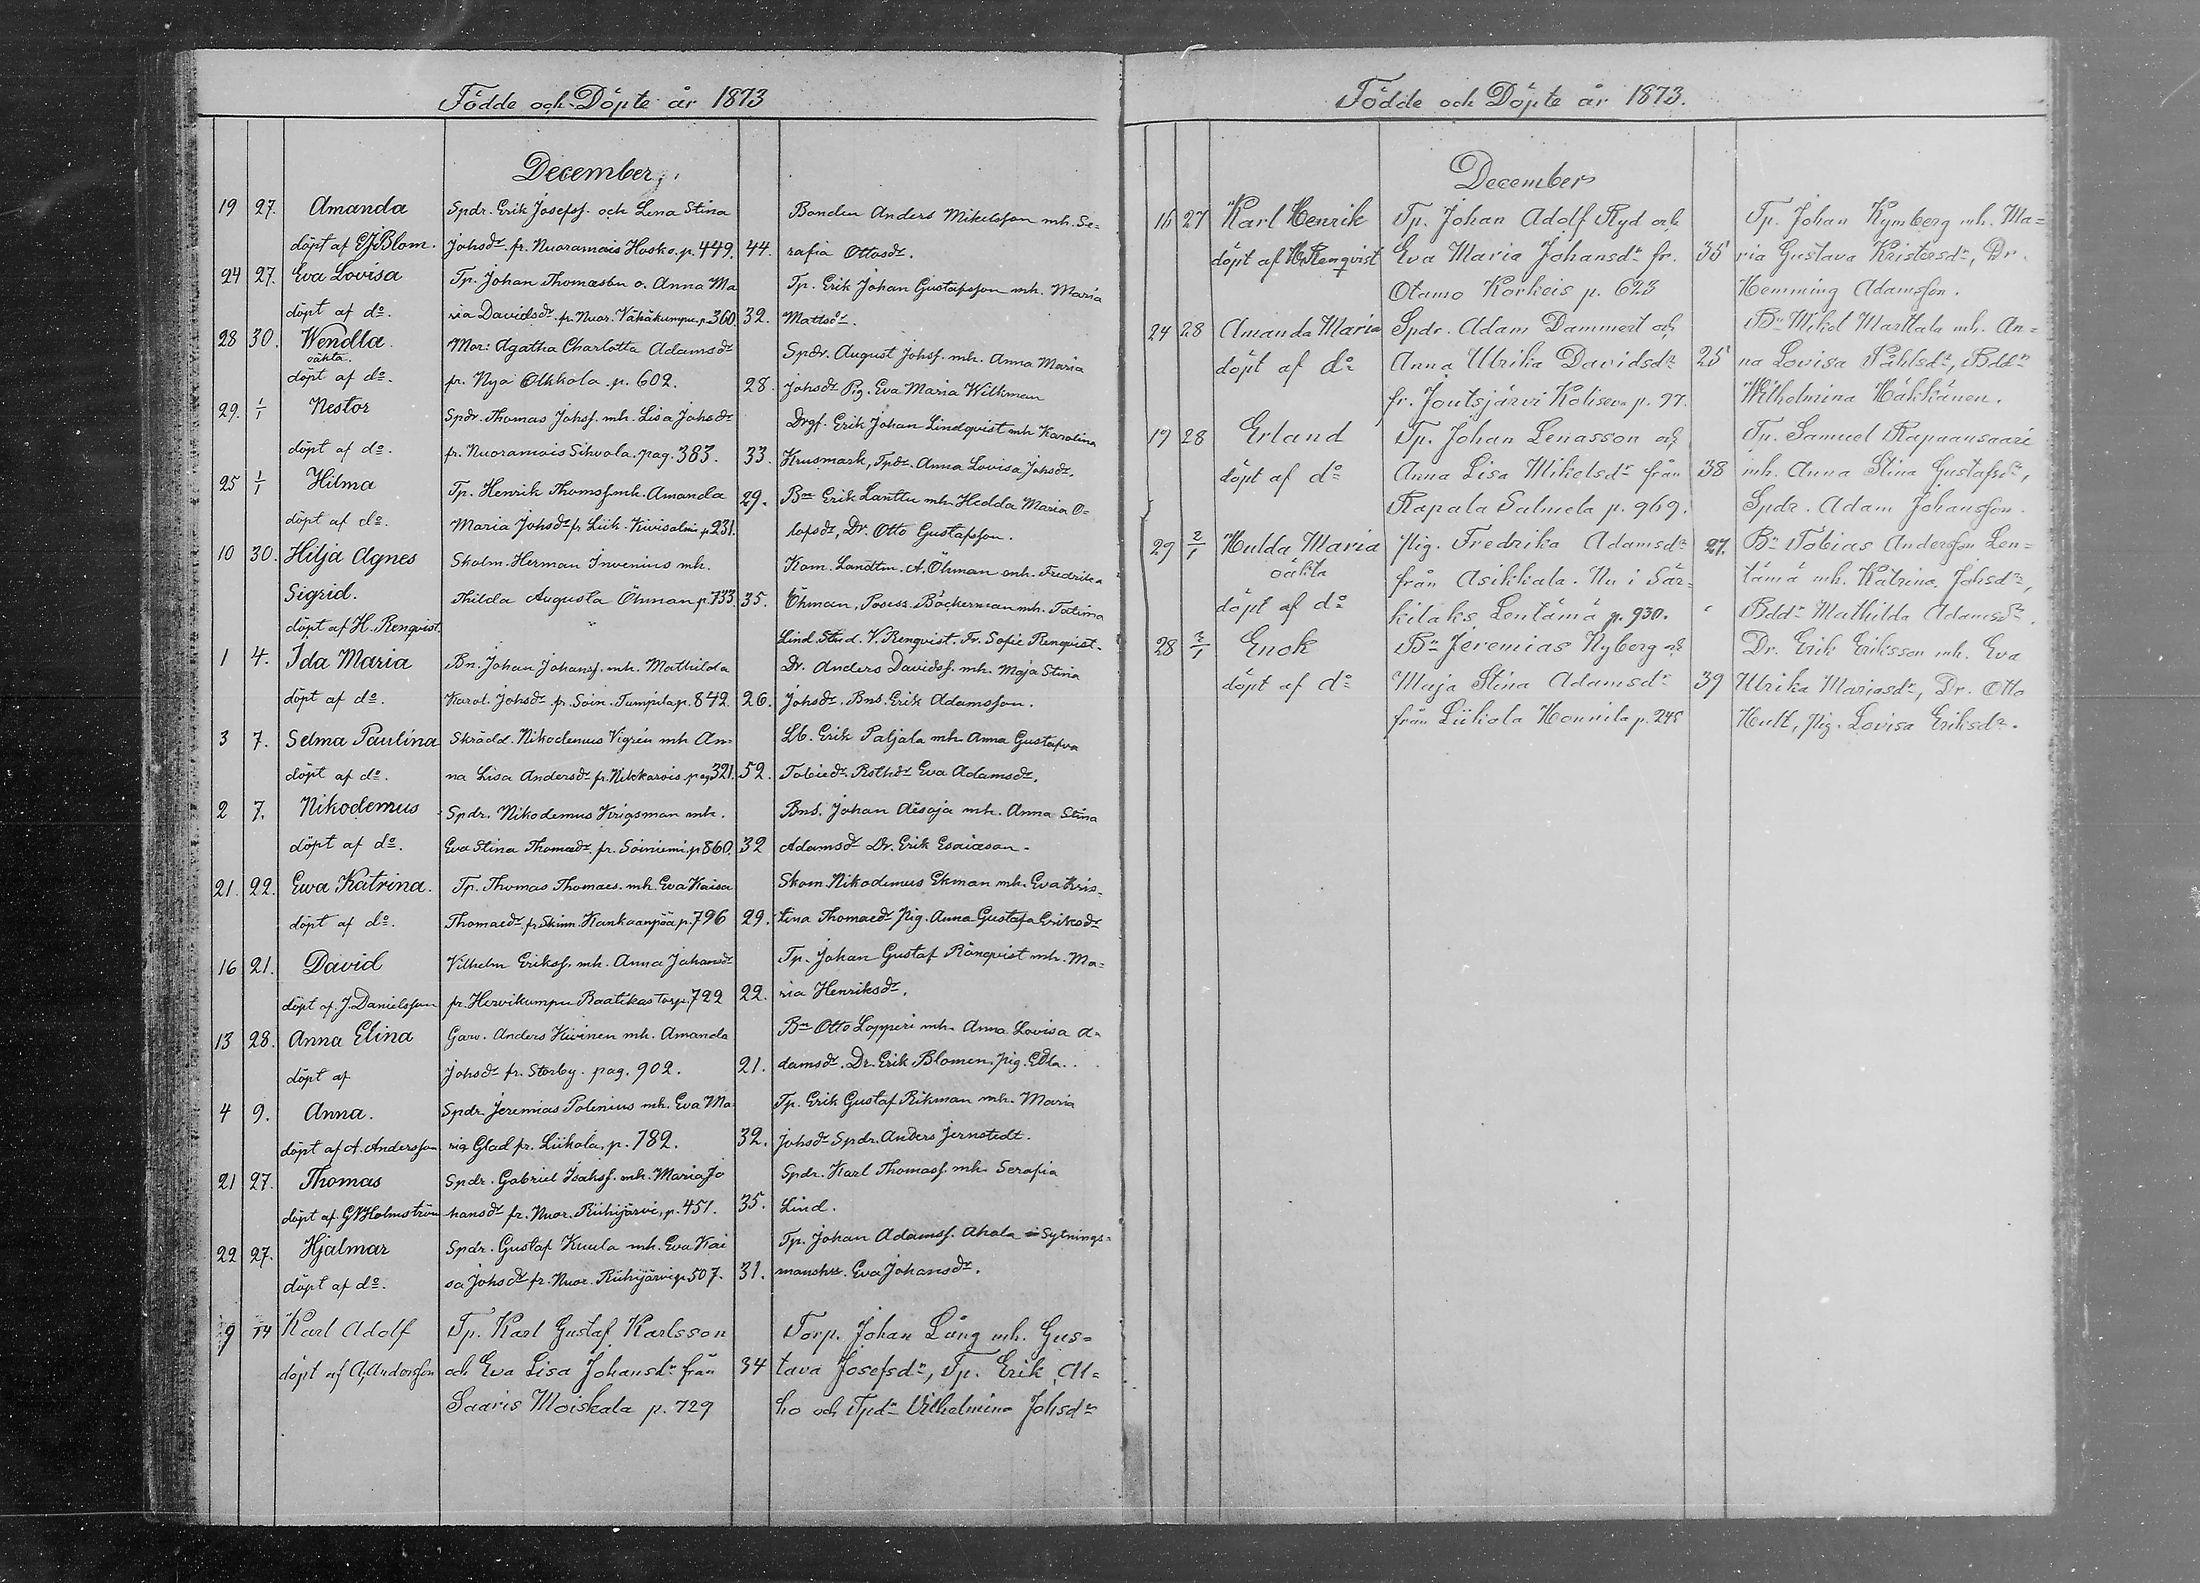 Födde och Döpte år 1873
December
19 27. Amanda Spdr. Erik Josefsf. och Lena Stina Bonden Anders Mikelsson mh. Se-
döpt af GJBlom. Johsdr. fr. Nuoramois Hosko. p. 449. 44. rafia Ottosdr.
24 27. Eva Lovisa Tp. Johan Thomasson o. Anna Ma Tp. Erik Johan Gustafsson mh. Maria
döpt af do. ria Davidsdr. fr. Nuor. Vähäkumpu. p. 360 32. Mattsdr.
28 30. Wendla Mor: Agatha Charlotta Adamsdr Spdr. August Johsf. mh. Anna Maria
oäkta.
döpt af do. fr. Nya Olkkola. p. 602. 28. Johsdr Pig. Eva Maria Wilkman
29. 1/1 Nestor Spdr. Thomas Johsf. mh. Lisa Johsdr Drgf. Erik Johan Lindqvist mh Karolina
döpt af do. fr. Nuoramois Sihvola. pag. 383. 33. Krusmark, Tpdr. Anna Lovisa Johsdr.
25 1/1 Hilma Tp. Henrik Thomsf. mh. Amanda 29. Bn Erik Lanttu mh. Hedda Maria O-
döpt af do. Maria Johsdr fr. Liik. Kivisalmi p 231. lofsdr, Dr. Otto Gustafsson.
10 30. Hilja Agnes Skolm. Herman Invenius mh. Kom. Landtm. A. Öhman mh. Fredrika
Sigrid. Thilda Augusta Öhman p. 733 35. Öhman, Posess. Böckerman mh. Tatima
döpt af H. Renqvist. Lind. Stud. V. Renqvist. Fr. Sofie Renqvist.
1 4. Ida Maria Bn. Johan Johansf. mh. Mathilda Dr. Anders Davidsf. mh. Maja Stina
döpt af do. Karol. Johsdr fr. Soin. Tumpila p. 842. 26. Johsdr. Bns. Erik Adamsson.
3 7. Selma Paulina Skrädd. Nikodemus Vigren mh An- Lb. Erik Paljala mh. Anna Gustafva
döpt af do. na Lisa Andersdr. fr. Nikkarois. pag 321. 52. Tobiedr. Rsthdr Eva Adamsdr.
2 7. Nikodemus Spdr. Nikodemus Krigsman mh. Bns. Johan Alsaja mh. Anna Stina
döpt af do. Eva Stina Thomaedr. fr. Soiniemi. p 860. 32 Adamsdr Dr. Erik Esaiason.
21. 22. Ewa Katrina. Tp. Thomas Thomaes. mh. Eva Kaisa Skom. Nikodemus Ekman mh. Eva Kris-
döpt af do. Thomaedr. fr. Skinn. Kankaanpää p. 796 29. tina Thomaedr Pig. Anna Gustafa Eriksdr
16 21. David Vilhelm Eriksf. mh. Anna Johansdr Tp. Johan Gustaf Rönqvist mh. Ma=
döpt af J. Danielsson fr. Hervikumpu Raatikas Torp. 722 22. ria Henriksdr.
13 28. Anna Elina Garv. Anders Kivinen mh. Amanda Bn Otto Lopperi mh. Anna Lovisa A-
döpt af Johsdr fr. Storby. pag. 902. 21. damsdr. Dr. Erik Blomen. Pig. Edla.
4 9. Anna. Spdr. Jeremias Polenius mh. Eva Ma Tp. Erik Gustaf Rikman mh. Maria
döpt af A. Andersson ria Glad fr. Liikola. p. 782. 32. Johsdr Spdr. Anders Jernstedt.
21 27. Thomas Spdr. Gabriel Isaksf. mh. Maria Jo Spdr. Karl Thomasf. mh. Serafia
döpt af GVHolmström hansdr fr. Nuor. Riihijärvi, p. 451. 35. Lind.
22 27. Hjalmar Spdr. Gustaf Kuula mh. Eva Kai Tp. Johan Adamsf. Ahola Sytnings=
döpt af do. sa Johsdr fr. Nuor. Riihijärvi p. 507. 31. manshr. Eva Johansdr.
9 14 Karl Adolf Tp. Karl Gustaf Karlsson Torp. Johan Lång mh. Gus=
döpt af A. Andersson och Eva Lisa Johansdr från 34 tava Josefsdr, Tp. Erik Al=
Saaris Moiskala p. 729 ho och Tpdr Vilhelmina Johsdr
Födde och Döpte år 1873.
December
16 27 Karl Henrik Tp. Johan Adolf Ryd och Tp. Johan Kymberg mh. Ma=
döpt af H. Renqvist Eva Maria Johansdr fr. 35 ria Gustava Kristersdr, Dr.
Otamo Korkeis p. 623 Hemming Adamsson.
24 28 Amanda Maria Spdr. Adam Dammert och Bn Mikel Marttala mh. An=
döpt af do Anna Ulrika Davidsdr 25 na Lovisa Påhlsdr, Bddr
fr. Joutsjärvi Koliseva p. 97. Wilhelmina Häkkänen.
19 28 Erland Tp. Johan Lenasson och Tn. Samuel Rapaansaari
döpt af do Anna Lisa Mikelsdr från 38 mh. Anna Stina Gustafsdr,
Rapala Salmela p. 969. Spdr. Adam Johansson.
29 2/1 Hulda Maria Pig. Fredrika Adamsdr 27. Bn Tobias Andersson Len=
oäkta från Asikkala. Nu i Sär= tämä mh. Katrina Johsdr,
döpt af do kilaks Lentämä p. 930. Bddr Mathilda Adamsdr.
28 2/1 Enok Bn Jeremias Nyberg och Dr. Erik Eriksson mh. Eva
döpt af do Maja Stina Adamsdr 39 Ulrika Mariasdr, Dr. Otto
från Liikola Honnila p. 245 Hult, Pig. Lovisa Eriksdr.